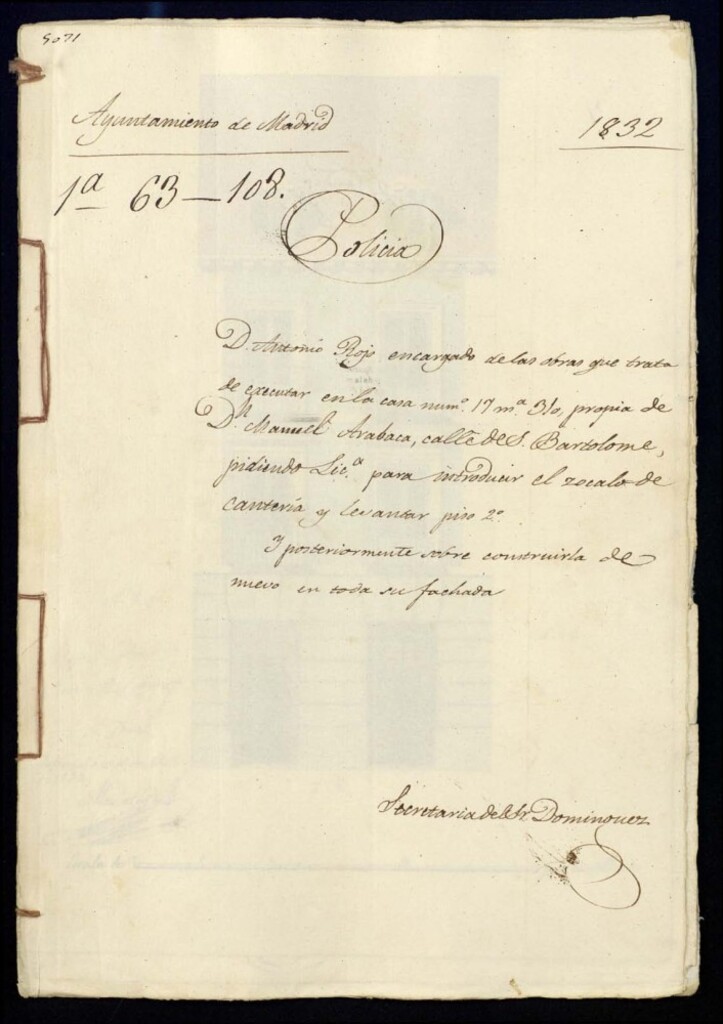 5071
Ayuntamiento de Madrid
1832
1ª 63—108.
Policia
D. Antonio Rojo encargado de las obras que trata
de executar en la casa num.º 17 m.ª 310, propia de
D.n Manuel Arabaca, calle de S. Bartolome,
pidiendo Lic.ª para introducir el zocalo de
canteria y levantar piso 2.º
Y posteriormente sobre construirla de
nuevo en toda su fachada
Secretaria del Sr. Dominguez